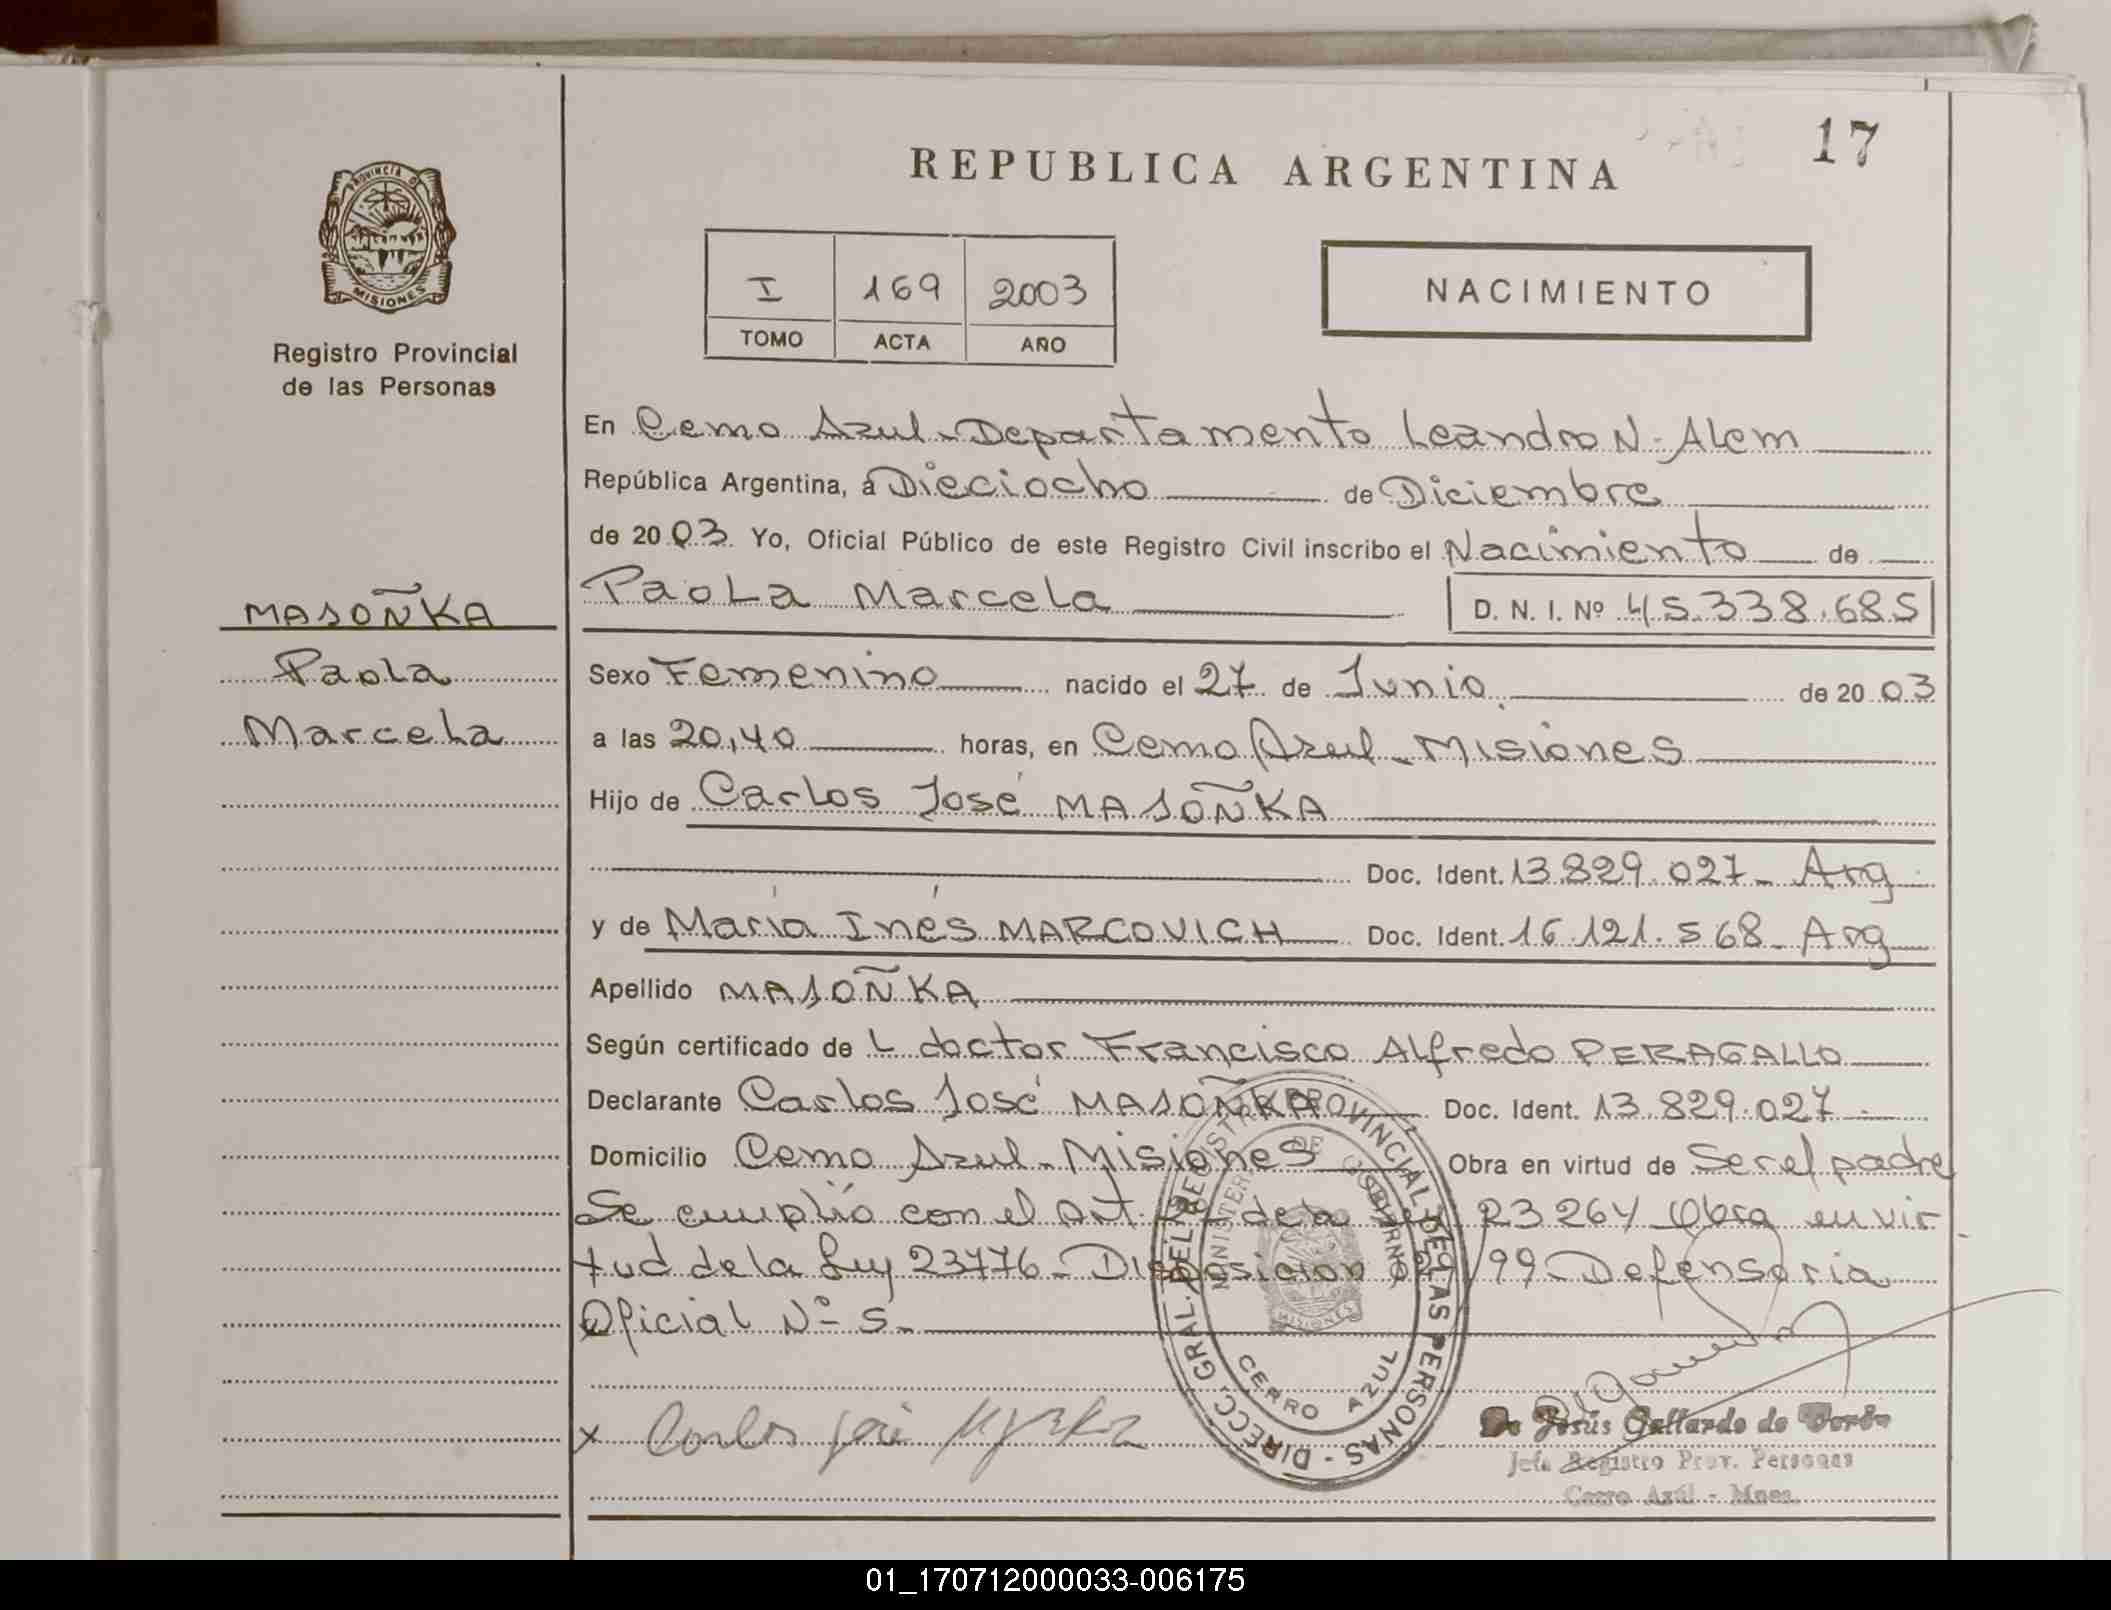 17
REPUBLICA ARGENTINA
PROVINCIA D
MISIONES
Registro Provincial
de las Personas
I 169 2003
TOMO ACTA AÑO
NACIMIENTO
En Cerro Azul - Departamento Leandro N. Alem
República Argentina, a Dieciocho de Diciembre
de 2003 Yo, Oficial Público de este Registro Civil inscribo el Nacimiento de
MASOÑKA
Paola
Marcela
Paola Marcela D. N. I. Nº 45.338.685
Sexo Femenino nacido el 27 de Junio de 2003
a las 20,40 horas, en Cerro Azul - Misiones
Hijo de Carlos José MASOÑKA
Doc. Ident. 13.829.027 - Arg
y de María Inés MARCOVICH Doc. Ident. 16.121.568 - Arg
Apellido MASOÑKA
Según certificado de L doctor Francisco Alfredo PERAGALLO
Declarante Carlos José MASOÑKA Doc. Ident. 13.829.027
Domicilio Cerro Azul - Misiones Obra en virtud de Ser el padre
Se cumplió con el Art. de la 23264 Obra en vir
tud de la Ley 23776 - Disposición /99 - Defensoria
Oficial Nº 5.
DIRECC. GRAL. DEL REGISTRO PROVINCIAL DE LAS PERSONAS -
MINISTERIO DE GOBIERNO
MISIONES
CERRO AZUL
x Carlos José
De Jesús Gallardo de
Jefe Registro Prov. Personas
Cerro Azúl - Mnes.
01_170712000033-006175